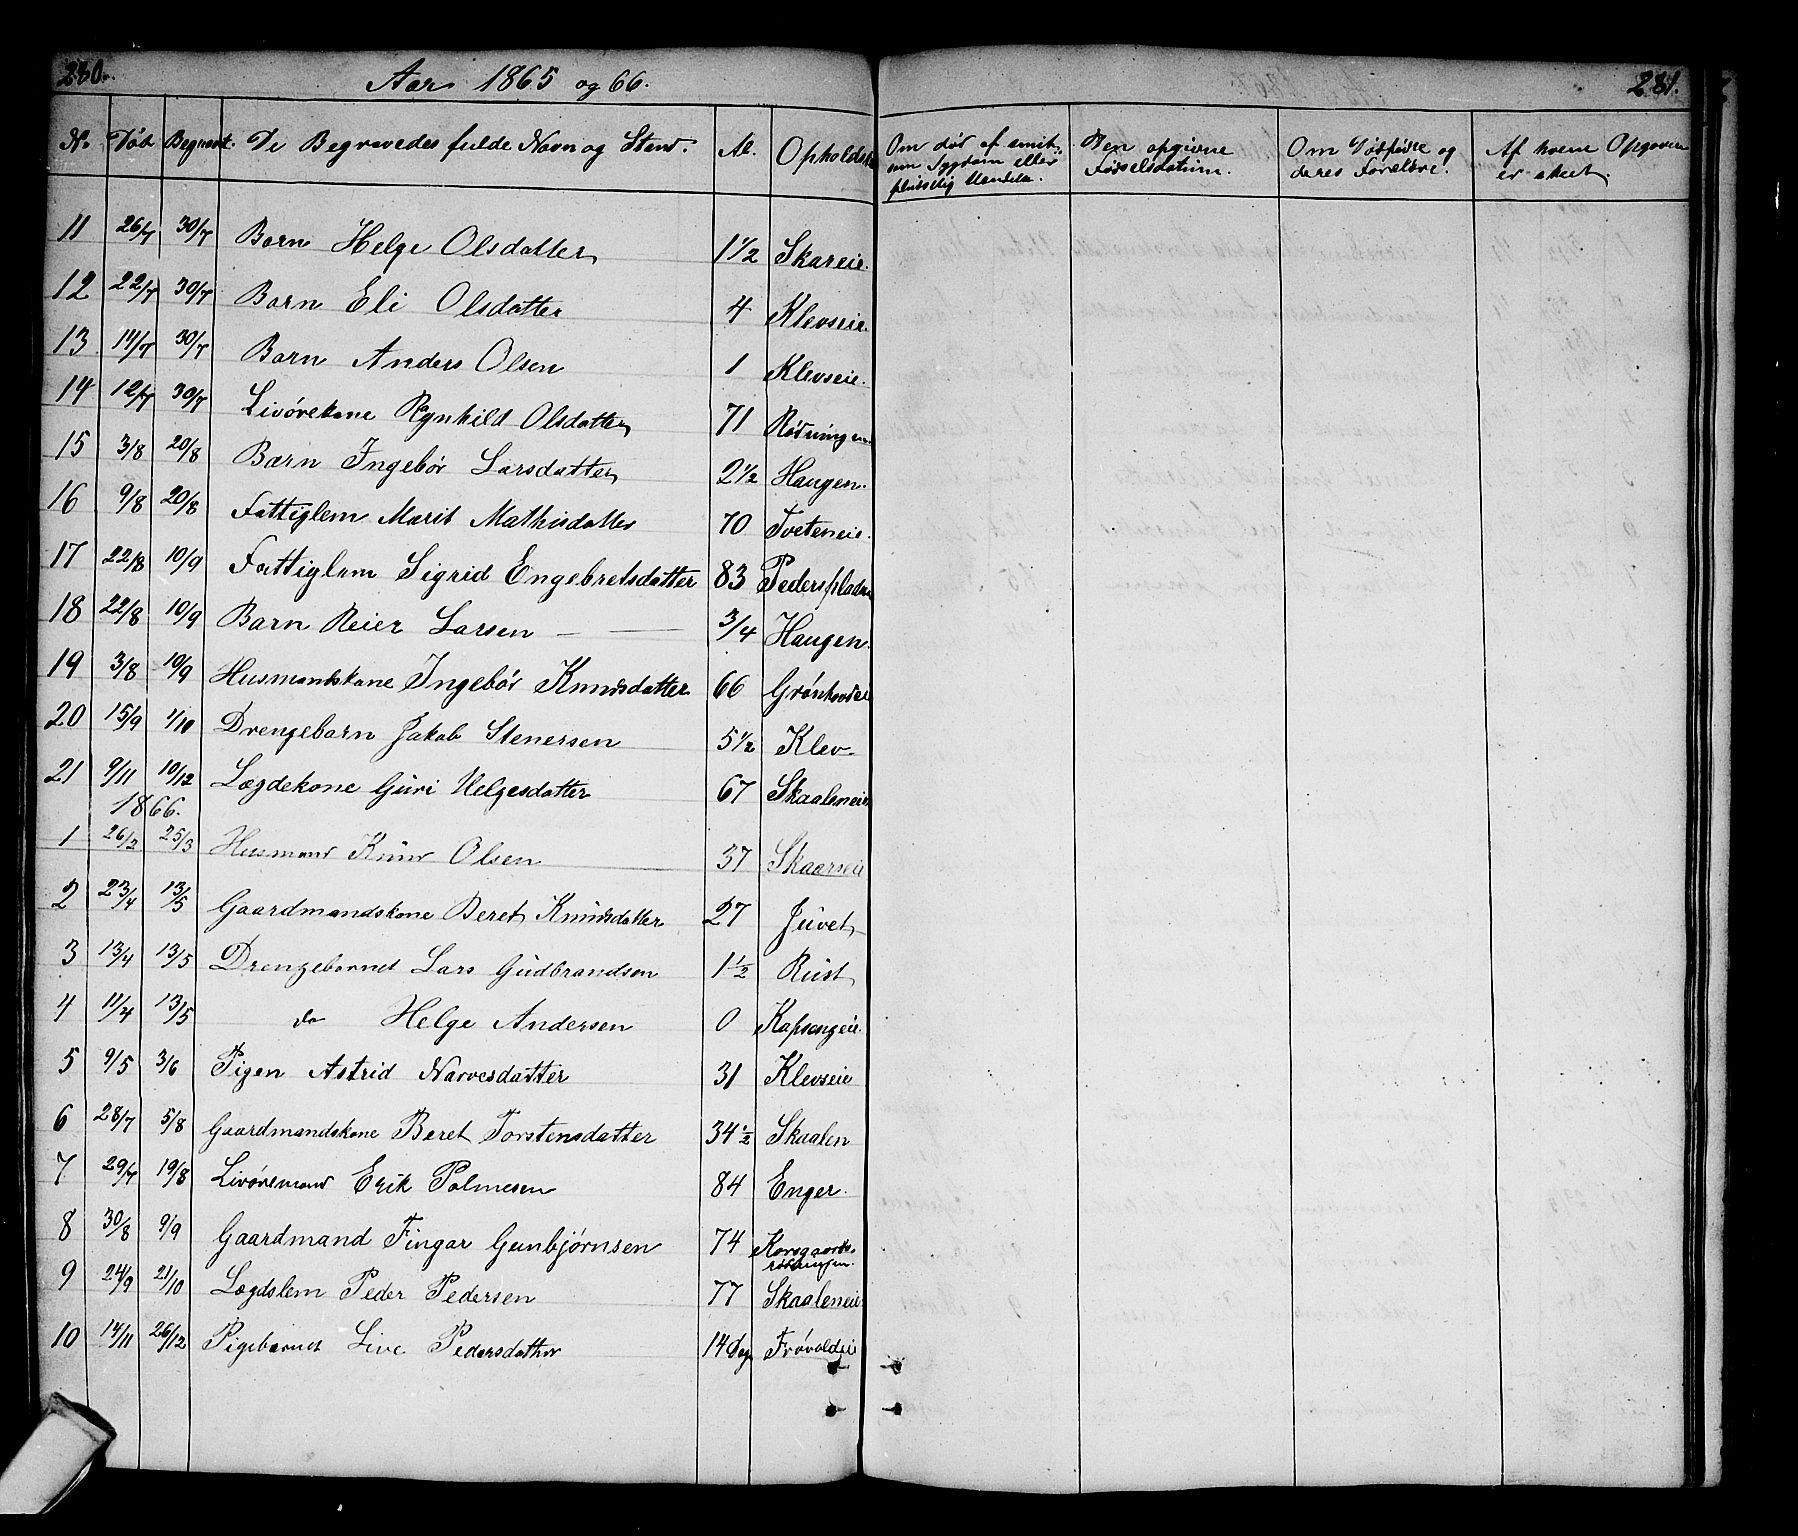 280.
Aar 1865 og 66.
N. Død Begravet. De Begravedes fulde Navn og Stand Al. Opholdst
11 26/7 30/7 Barn Helge Olsdatter 1 1/2 Skareie.
12 22/7 30/7 Barn Eli Olsdatter 4 Klevseie.
13 14/7 30/7 Barn Anders Olsen 1 Klevseie.
14 12/7 30/7 Livørekone Rgnhild Olsdatter 71 Rødningen
15 3/8 20/8 Barn Ingebør Larsdatter 2 1/2 Haugen.
16 9/8 20/8 Fattiglem Marit Mathisdatter 70 Tveteneie.
17 22/8 10/9 Fattiglem Sigrid Engebretsdatter 83 Pederspladsen
18 22/8 10/9 Barn Reier Larsen — — 3/4 Haugen.
19 3/8 10/9 Husmandskone Ingebør Knudsdatter 66 Grønhovdei
20 15/9 1/10 Drengebarn Jakob Stenersen 5 1/2 Klev
21 9/11 10/12 Lægdekone Guri Helgesdatter 67 Skaaleneie
1866.
1 26/2 25/3 Husmand Knud Olsen 37 Skaarseie
2 23/4 13/5 Gaardmandskone Beret Knudsdatter 27 Juvet
3 13/4 13/5 Drengebarnet Lars Gudbrandsen 1 1/2 Rust
4 11/4 13/5 do Helge Andersen 0 Kapsengeie.
5 9/5 3/6 Pigen Astrid Narvesdatter 31 Klevseie
6 28/7 5/8 Gaardmandskone Beret Torstensdatter 34 1/2 Skaalen
7 29/7 19/8 Livøremand Erik Palmesen 84 Enger.
8 30/8 9/9 Gaardmand Fingar Gunbjørnsen 74 Korsgaards-
rødningen.
9 24/9 21/10 Lægdslem Peder Pedersen 77 Skaaleneie
10 14/11 26/12 Pigebarnet Live Pedersdatter 14 Dag Frøvoldeie
281.
Om død af smit-
som Sygdom eller
pludselig Hændelse.
Den opgivne
Fødselsdatum.
Om Dødfødte og
deres Forældre.
Af hvem Opgaven
er skeet.